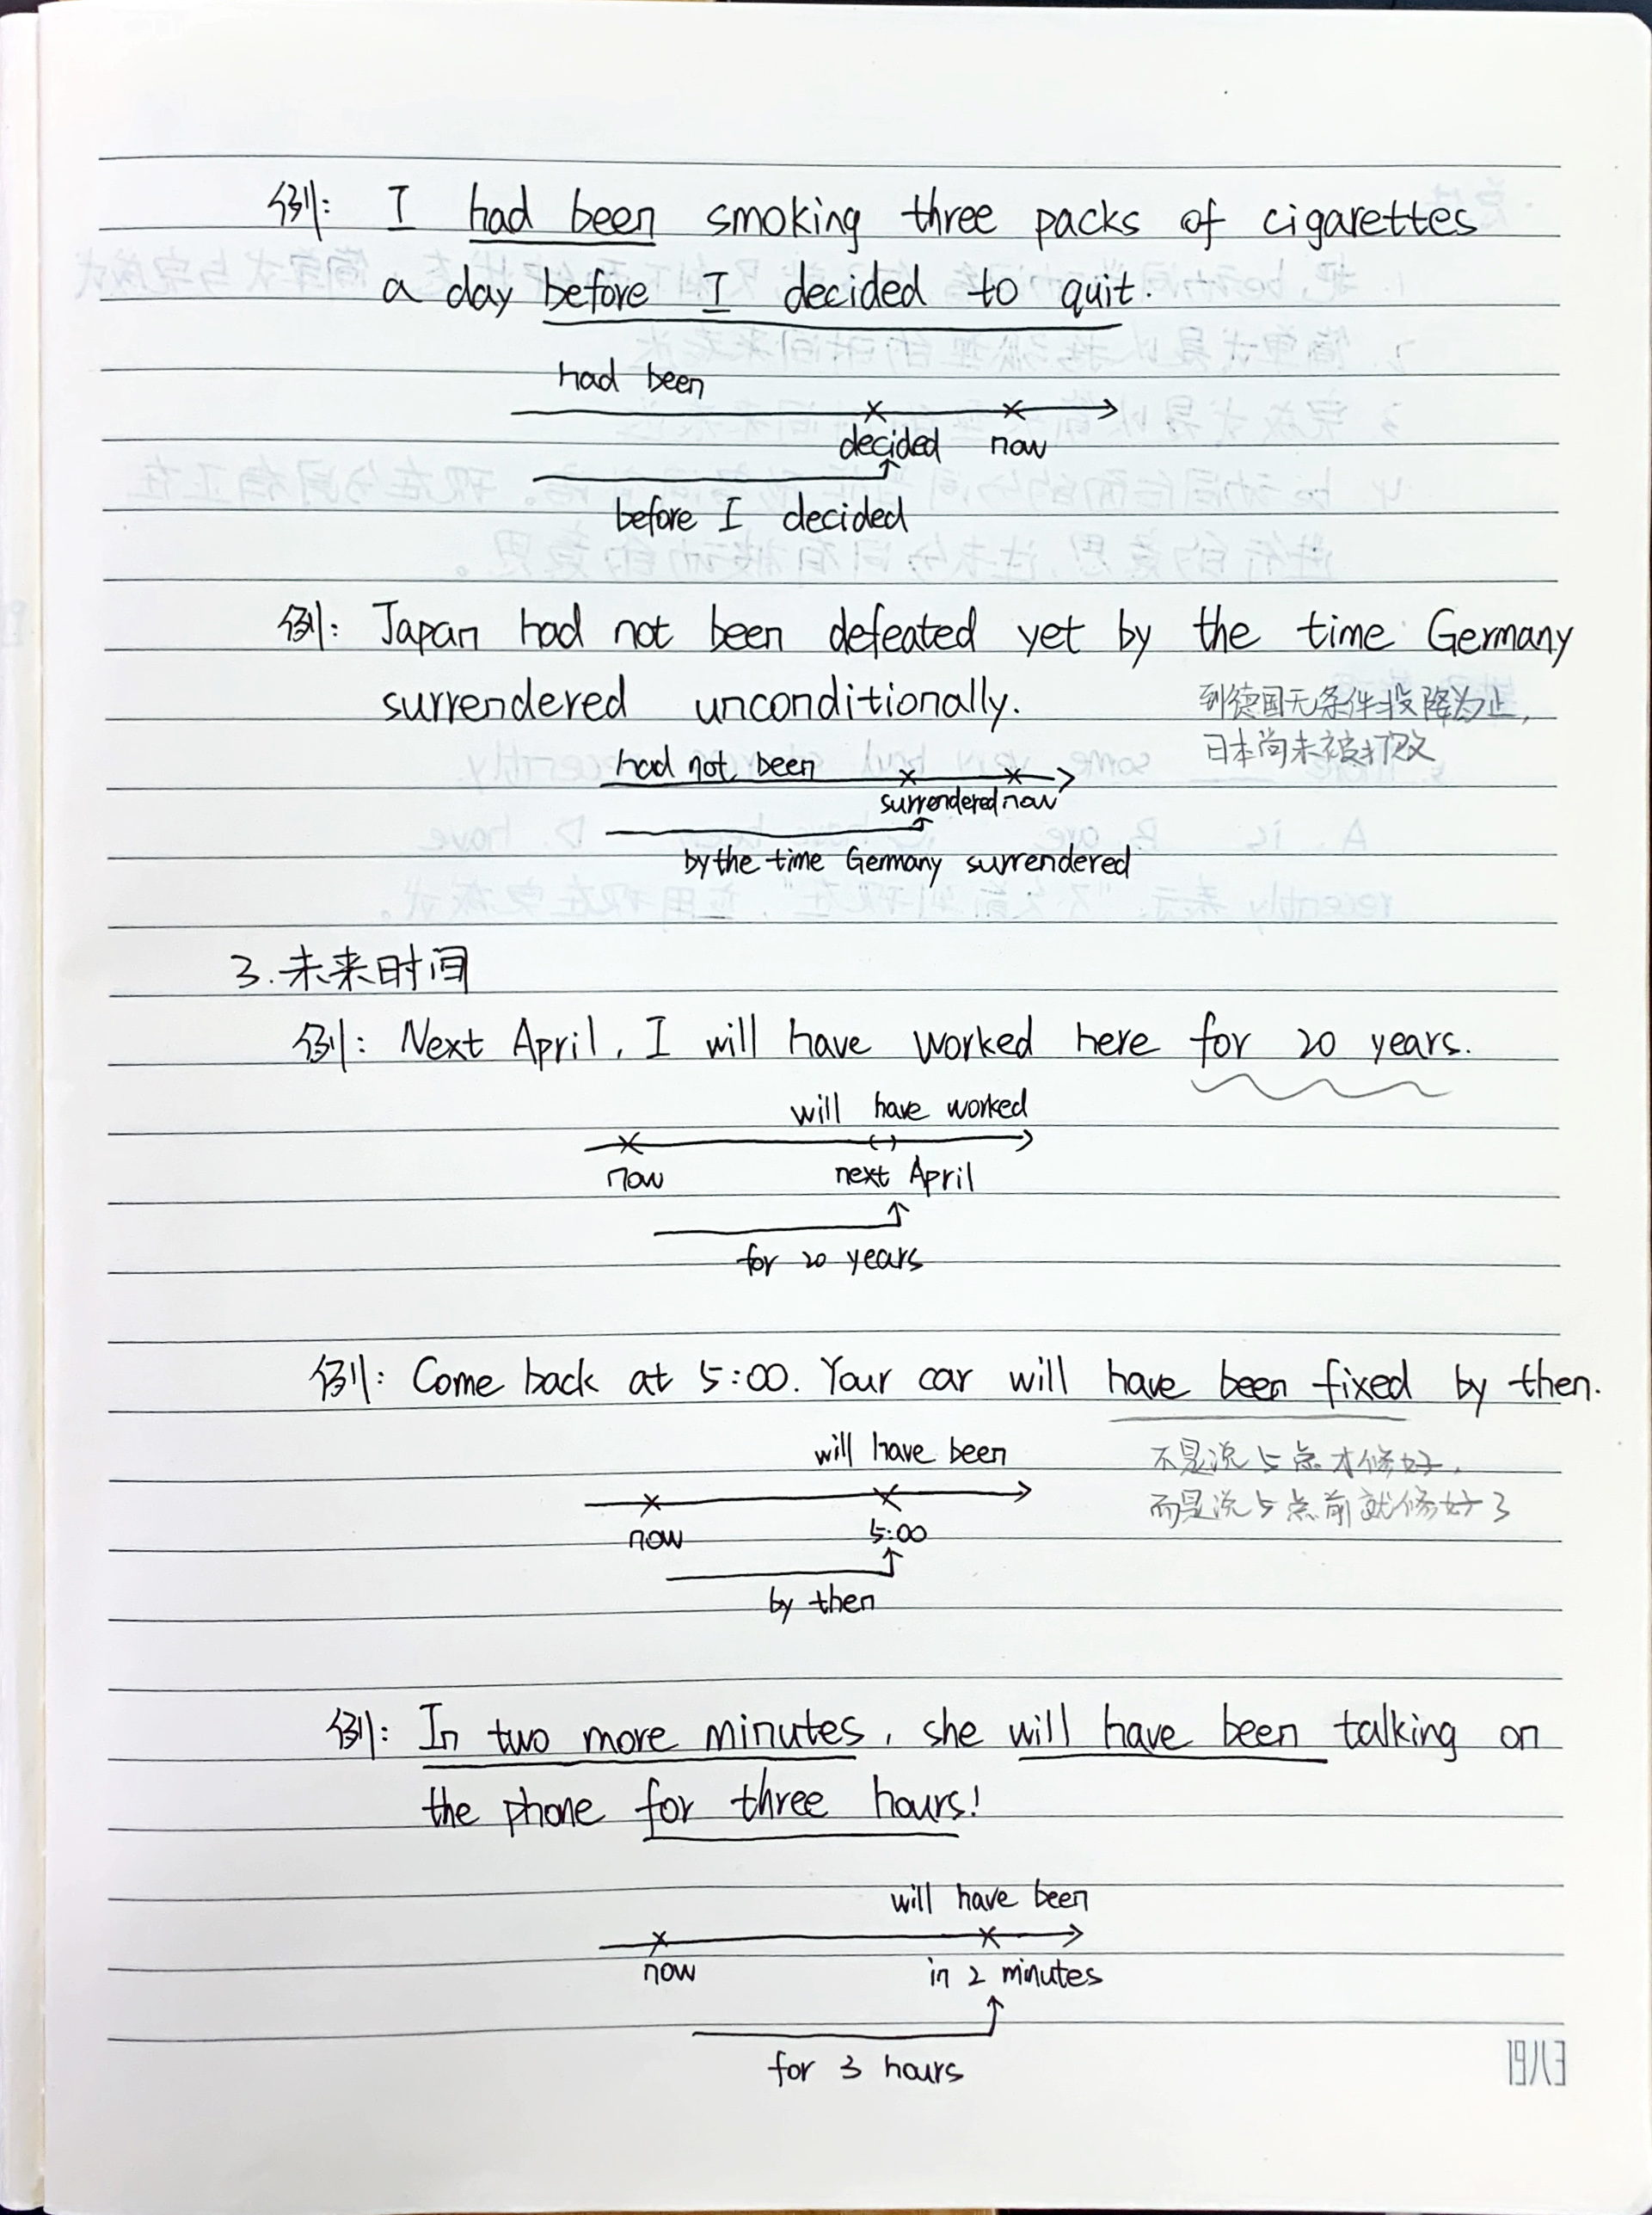 例: I had been smoking three packs of cigarettes
a day before I decided to quit.
had been
decided now
before I decided
例: Japan had not been defeated yet by the time Germany
surrendered unconditionally.
到德国无条件投降为止,
日本尚未被打败
had not been
surrendered now
by the time Germany surrendered
3.未来时间
例: Next April, I will have worked here for 20 years.
will have worked
now next April
for 20 years
例: Come back at 5:00. Your car will have been fixed by then.
will have been
不是说5点才修好,
而是说5点前就修好了
now 5:00
by then
例: In two more minutes, she will have been talking on
the phone for three hours!
will have been
now in 2 minutes
for 3 hours